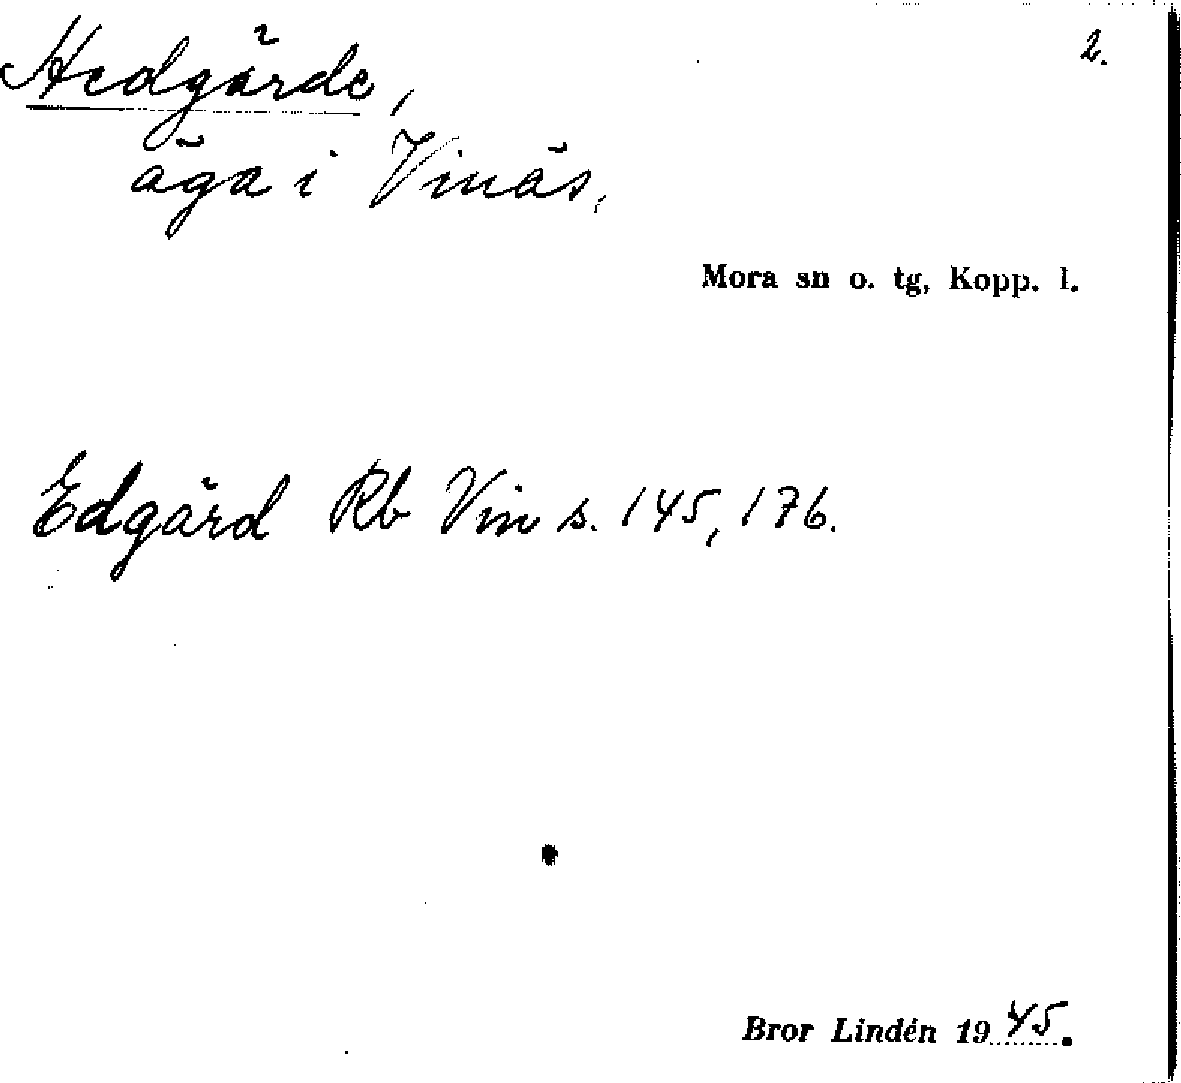 2.
Hedgärde,
äga i Vinäs,
Mora sn o. tg, Kopp. l.
Edgärd Rb Vin s. 145, 176.
Bror Lindén 1945.